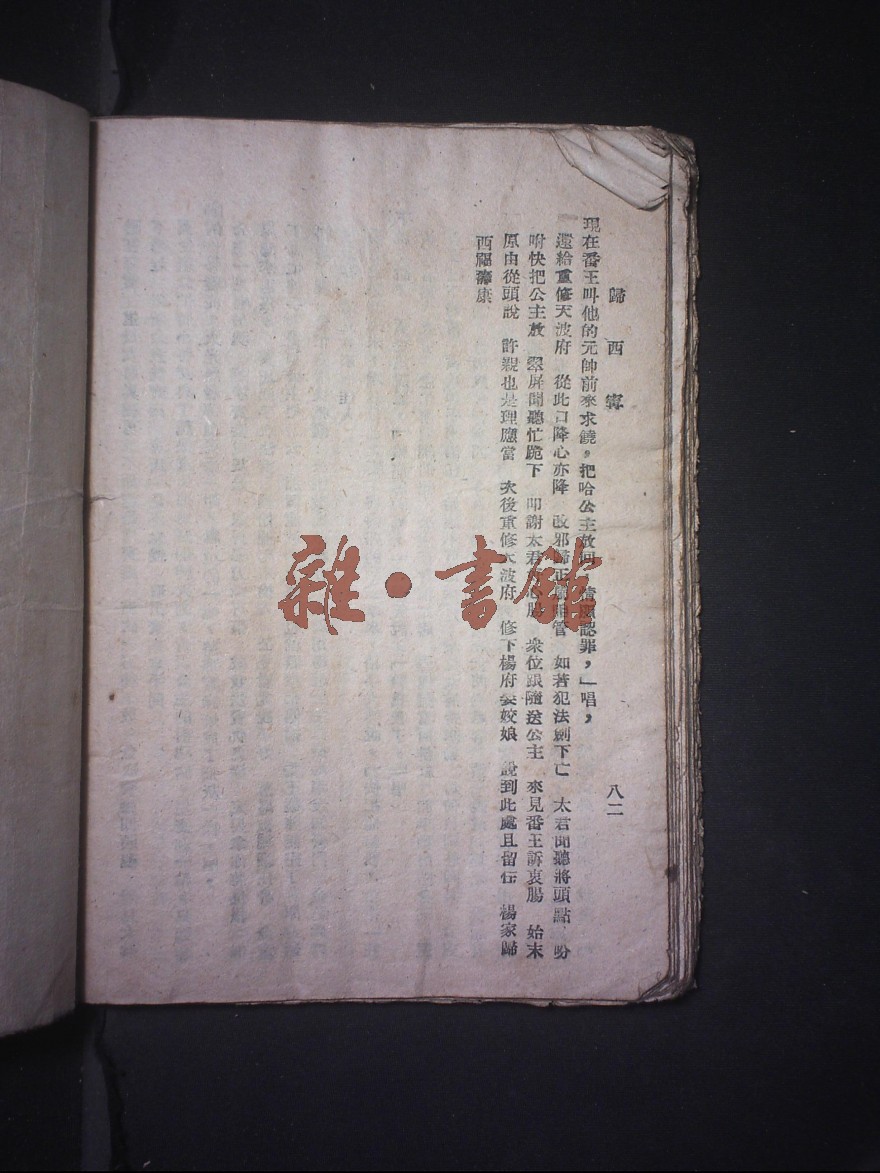 歸西寗
八二
現在番王叫他的元帥前來求饒,把哈公主放回,情願認罪,」唱,
還給重修天波府 從此口降心亦降 改邪歸正 管 如若犯法劍下亡 太君聞聽將頭點 吩
咐快把公主放 翠屏聞聽忙跪下 叩謝太君 心腸 衆位跟隨送公主 來見番王訴衷腸 始末
原由從頭說 許親也是理應當 次後重修天波府 修下楊府 姣娘 說到此處且留住 楊家歸
西福壽康
雜·書館